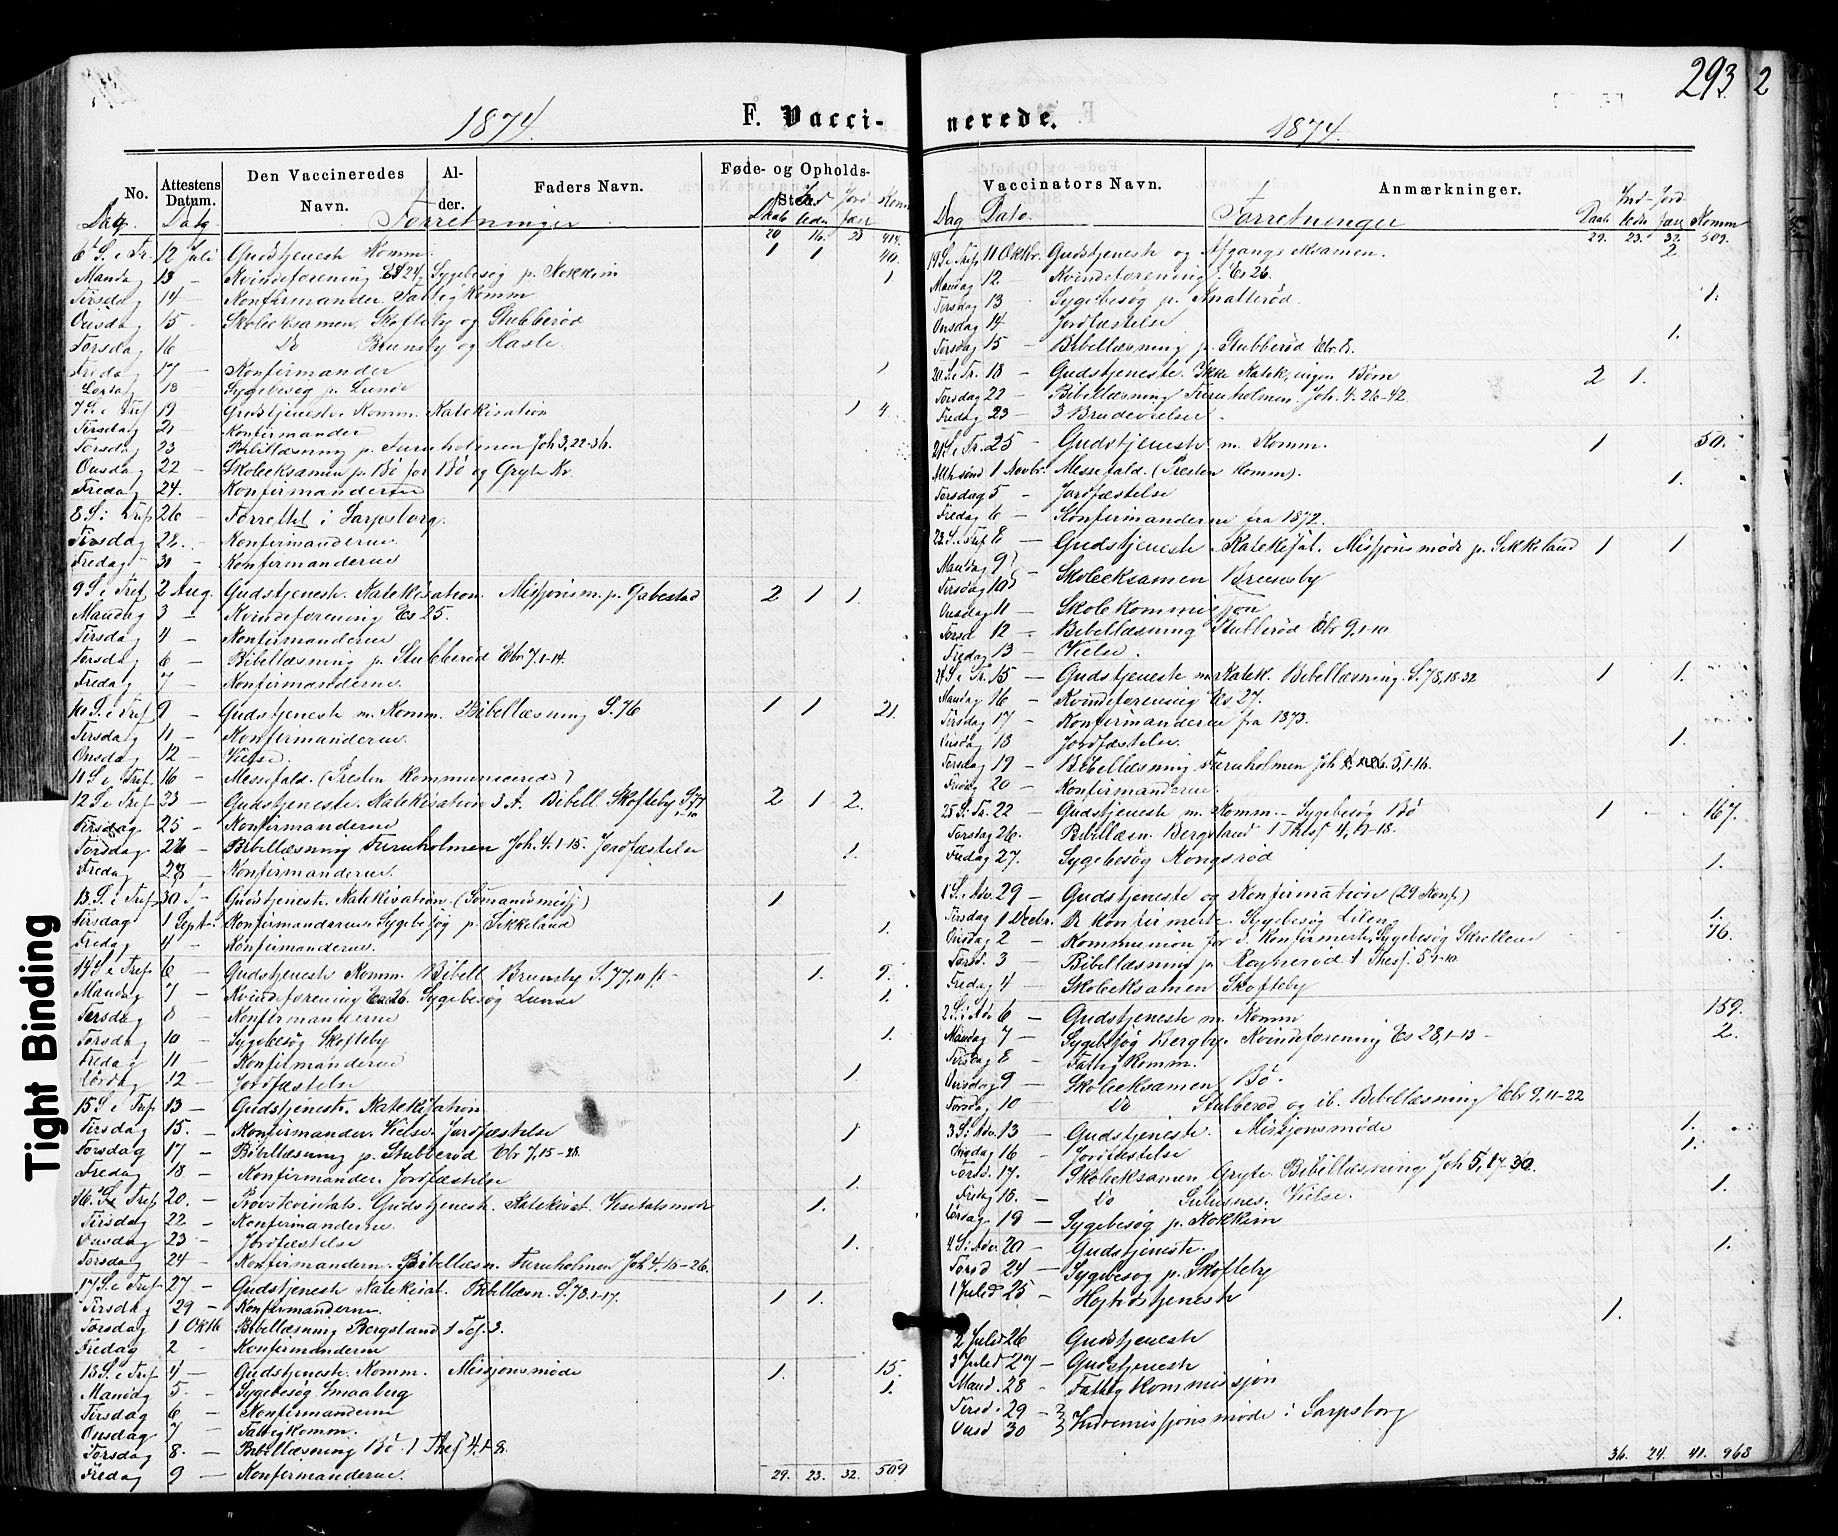 293
2
1874.
F. Vacci-
No.
Attestens Datum.
Den Vaccineredes Navn.
Al- der.
Faders Navn.
Føde- og Opholds- Sted
Dag. Dato Forretninger Daab Indledn Jordfæst Komm
20 16. 23 414.
6 S. e Tr. 12 Juli Gudstjeneste Komm. 1 1 40.
Mandag 13 - Kvindeforening Es 24. Sygebesøg p. Kokkim 1
Tirsdag 14 - Konfirmander. Fattigkomm
Onsdag 15 - Skoleeksamen, Skofteby og Stubberød
Torsdag 16 Do Brunsby og Hasle.
Fredag 17 - Konfirmander 1
Lørdag 18 - Sygebesøg p. Lunde
7 S. e Tref 19 Gudstjeneste Komm. Katekisation 1 4.
Tirsdag 21 - Konfirmander
Torsdag 23 Bibellæsning p. Furuholmen Joh 3,22-36.
Onsdag 22 - Skoleeksamen p. Bø for Bø og Gryte Kr.
Fredag 24. - Konfirmanderne
8 S. e Tref 26 - Forrettet i Sarpsborg.
Tirsdag 28. - Konfirmanderne.
Fredag 31 - Konfirmanderne
9 S. e Tref 2 Aug. Gudstjeneste. Katekisation. Missjonsm. p. Gabestad 2 1 1.
Mandag 3 - Kvindeforening Es 25.
Tirsdag 4 - Konfirmanderne
Torsdag 6 - Bibellæsning p. Stubberød Ebr 7.1-14.
Fredag 7 - Konfirmanderne.
10 S. e Tref 9 - Gudstjeneste m. Komm. Bibellæsning S.76 1 1 21.
Tirsdag 11 - Konfirmanderne.
Onsdag 12 - Vielse.
11 S. e Tref 16 - Messefald. (Presten kommunicerede)
12 S. e Tref 23 - Gudstjeneste. Katekisation 3 A. Bibell. Skofteby S.77 1-10 2 1 2.
Tirsdag 25 - Konfirmanderne
Torsdag 26 - Bibellæsning Furuholmen Joh. 4.1-15. Jordfæstelse 1.
Fredag 28 - Konfirmanderne.
13. S. e Tref 30 - Gudstjeneste. Katekisation. (Sømandsmisj) 1
Tirsdag 1 Sept. Konfirmanderne. Sygebesøg p. Sikkeland 1.
Fredag 4 - Konfirmanderne.
14 S. e Tref. 6 - Gudstjeneste Komm. Bibell. Brunsby S.77, 11 ff - 1. 9.
Mandag 7 - Kvindeforening Es 26. Sygebesøg Lunde 1.
Tirsdag 8 - Konfirmanderne
Torsdag 10 - Sygebesøg Skofteby 1.
Fredag 11 - Konfirmanderne
Lørdag 12 - Jordfæstelse 1.
15 S. e Tref 13 - Gudstjeneste. Katekisation
Tirsdag 15. - Konfirmander. Vielse. Jordfæstelse 1
Torsdag 17 - Bibellæsning p. Stubberød Ebr 7,15-28.
Fredag 18 - Konfirmander. Jordfæstelse 1.
16. S. e Tref 20. - Provstevisitats. Gudstjeneste. Katekisat. Visitatsmøde 1.
Tirsdag 22 - Konfirmanderne.
Onsdag 23 - Jordfæstelse 1.
Torsdag 24 - Konfirmandern. Bibellæsn. Furuholmen Joh 4.16-26.
17 S. e Tref 27 - Gudstjeneste Katekisat. Bibellæsn. S.78.1-17. 1 1.
Tirsdag 29 - Konfirmanderne.
Torsdag 1 Oktb Bibellæsning Bergsland 1 Tes. 3.
Fredag 2 - Konfirmanderne
18 S. e Tref 4 - Gudstjeneste. Komm. Missjonsmøde 1. 15.
Mandag 5. - Sygebesøg Smaaberg 1.
Tirsdag 6 - Konfirmanderne
Onsdag 7 - Fattigkomm.
Torsdag 8. - Bibellæsning Bø. 1 Thes 4.1-8.
Fredag 9 - Konfirmanderne.
29. 23. 32. 509
nerede.
1874.
Vaccinators Navn.
Anmærkninger.
Dag Dato. Forretninger Daab Indledn Jordfæst Komm
29. 23. 32. 509.
19 S. e Tref 11 Oktbr. Gudstjeneste og Afgangseksamen. 2.
Mandag 12 - Kvindeforening. Es 26.
Tirsdag 13 - Sygebesøg p. Knatterød. 1.
Onsdag 14 Jordfæstelse 1.
Torsdag 15 - Bibellæsning p. Stubberød Ebr. 8.
20. S. e Tr. 18 - Gudstjeneste. Ikke Katek, ingen Børn 2 1.
Torsdag 22 - Bibellæsning Furuholmen. Joh. 4. 26-42.
Fredag 23 - 3 Brudevielser.
21 S. e Tr. 25 - Gudstjeneste m. Komm. 1 50.
Alh. sønd 1 Novbr. Messefald. (Presten Komm).
Torsdag 5 - Jordfæstelse 1.
Fredag 6 - Konfirmanderne fra 1872.
23 S. e Tref 8 - Gudstjeneste Katekisat. Missjonsmøde p. Sikkeland 1 1
Mandag 9
Tirsdag 10 - Skoleeksamen Brunsby
Onsdag 11 - Skolekommissjon
Torsd 12 - Bibellæsning Stubberød Ebr 9,1-10
Fredag 13 - Vielse.
24 S. e Tr. 15 - Gudstjeneste m. Katek. Bibellæsning. S.78,18-32 1 1.
Mandag 16 - Kvindeforening Es 27.
Tirsdag 17 - Konfirmanderne fra 1873.
Onsdag 18 Jordfæstelse. 1.
Torsdag 19 - Bibellæsning Furuholmen Joh 5,1-16.
Fredag 20 - Konfirmanderne.
25 S. Tr. 22 - Gudstjeneste m. Komm. - Sygebesøg Bø 1 167.
Torsdag 26. Bibellæsn. Bergsland 1 Thes 4,13-18.
Fredag 27. Sygebesøg Kongsrød 1.
1 S. Adv. 29 - Gudstjeneste og Konfirmation (29 Konf.)
Tirsdag 1 Decbr. De konfirmerte. Sygebesøg Lileng 1.
Onsdag 2 - Kommunion for d. Konfirmerte, Sygebesøg Skrellene 76.
Torsd. 3 - Bibellæsning p. Rognerød 1 Thess. 5.1-10.
Fredag 4 - Skoleeksamen Skofteby
2. S. i Adv 6 - Gudstjeneste m. Komm 159.
Mandag 7 - Sygebesøg Bergby. Kvindeforening Es 28,1-13 - 2.
Tirsdag 8 - Fattigkomm.
Onsdag 9 - Skoleeksamen Bø.
Torsdag 10 - Do Stubberød og ib. Bibellæsning Ebr 9,11-22
3 S. i Adv. 13 - Gudstjeneste. Missjonsmøde 1.
Onsdag 16 - Jordfæstelse. 1.
Torsd. 17. Skoleeksamen Gryte. Bibellæsning Joh 5,17-30.
Fredag 18. - Do Vielse. 1.
Lørdag 19 - Sygebesøg p. Kokkim
4 S. i Adv 20 - Gudstjeneste. 1.
Torsd 24 - Sygebesøg p. Skofteby
1 Juled 25 - Højtidstjeneste 1.
2 Juled 26 Gudstjeneste
3 Juled 27 - Gudstjeneste
Mand. 28 - Fattigkommissjon
Tirsd. 29 -
Onsd 30 Indremissjonsmøde i Sarpsborg
36. 24. 41. 968
Tight Binding